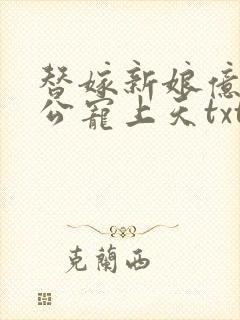 替嫁新娘億
公寵上天txt
克蘭西